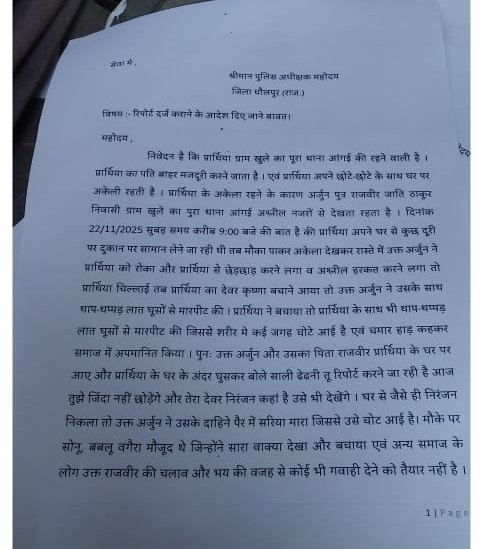 सेवा मे ,
श्रीमान पुलिस अधीक्षक महोदय
जिला धौलपुर (राज.)
विषय :- रिपोर्ट दर्ज कराने के आदेश दिए जाने बावत।
महोदय ,
निवेदन है कि प्रार्थिया ग्राम खुले का पूरा थाना आंगई की रहने वाली है ।
प्रार्थिया का पति बाहर मजदूरी करने जाता है । एवं प्रार्थिया अपने छोटे-छोटे के साथ घर पर
अकेली रहती है । प्रार्थिया के अकेला रहने के कारण अर्जुन पुत्र राजवीर जाति ठाकुर
निवासी ग्राम खुले का पुरा थाना आंगई अश्लील नजरों से देखता रहता है । दिनांक
22/11/2025 सुबह समय करीब 9:00 बजे की बात है की प्रार्थिया अपने घर से कुछ दूरी
पर दुकान पर सामान लेने जा रही थी तब मौका पाकर अकेला देखकर रास्ते में उक्त अर्जुन ने
प्रार्थिया को रोका और प्रार्थिया से छेड़छाड़ करने लगा व अश्लील हरकत करने लगा तो
प्रार्थिया चिल्लाई तब प्रार्थिया का देवर कृष्णा बचाने आया तो उक्त अर्जुन ने उसके साथ
थाप-थप्पड़ लात घूसों से मारपीट की । प्रार्थिया ने बचाया तो प्रार्थिया के साथ भी थाप-थप्पड़
लात घूसों से मारपीट की जिससे शरीर मे कई जगह चोटे आई है एवं चमार हाड़ कहकर
समाज में अपमानित किया । पुनः उक्त अर्जुन और उसका पिता राजवीर प्रार्थिया के घर पर
आए और प्रार्थिया के घर के अंदर घुसकर बोले साली ढेढनी तू रिपोर्ट करने जा रही है आज
तुझे जिंदा नहीं छोड़ेंगे और तेरा देवर निरंजन कहां है उसे भी देखेंगे । घर से जैसे ही निरंजन
निकला तो उक्त अर्जुन ने उसके दाहिने पैर में सरिया मारा जिससे उसे चोट आई है। मौके पर
सोनू, बबलू वगैरा मौजूद थे जिन्होंने सारा वाक्या देखा और बचाया एवं अन्य समाज के
लोग उक्त राजवीर की चलाव और भय की वजह से कोई भी गवाही देने को तैयार नहीं है ।
1 | Page